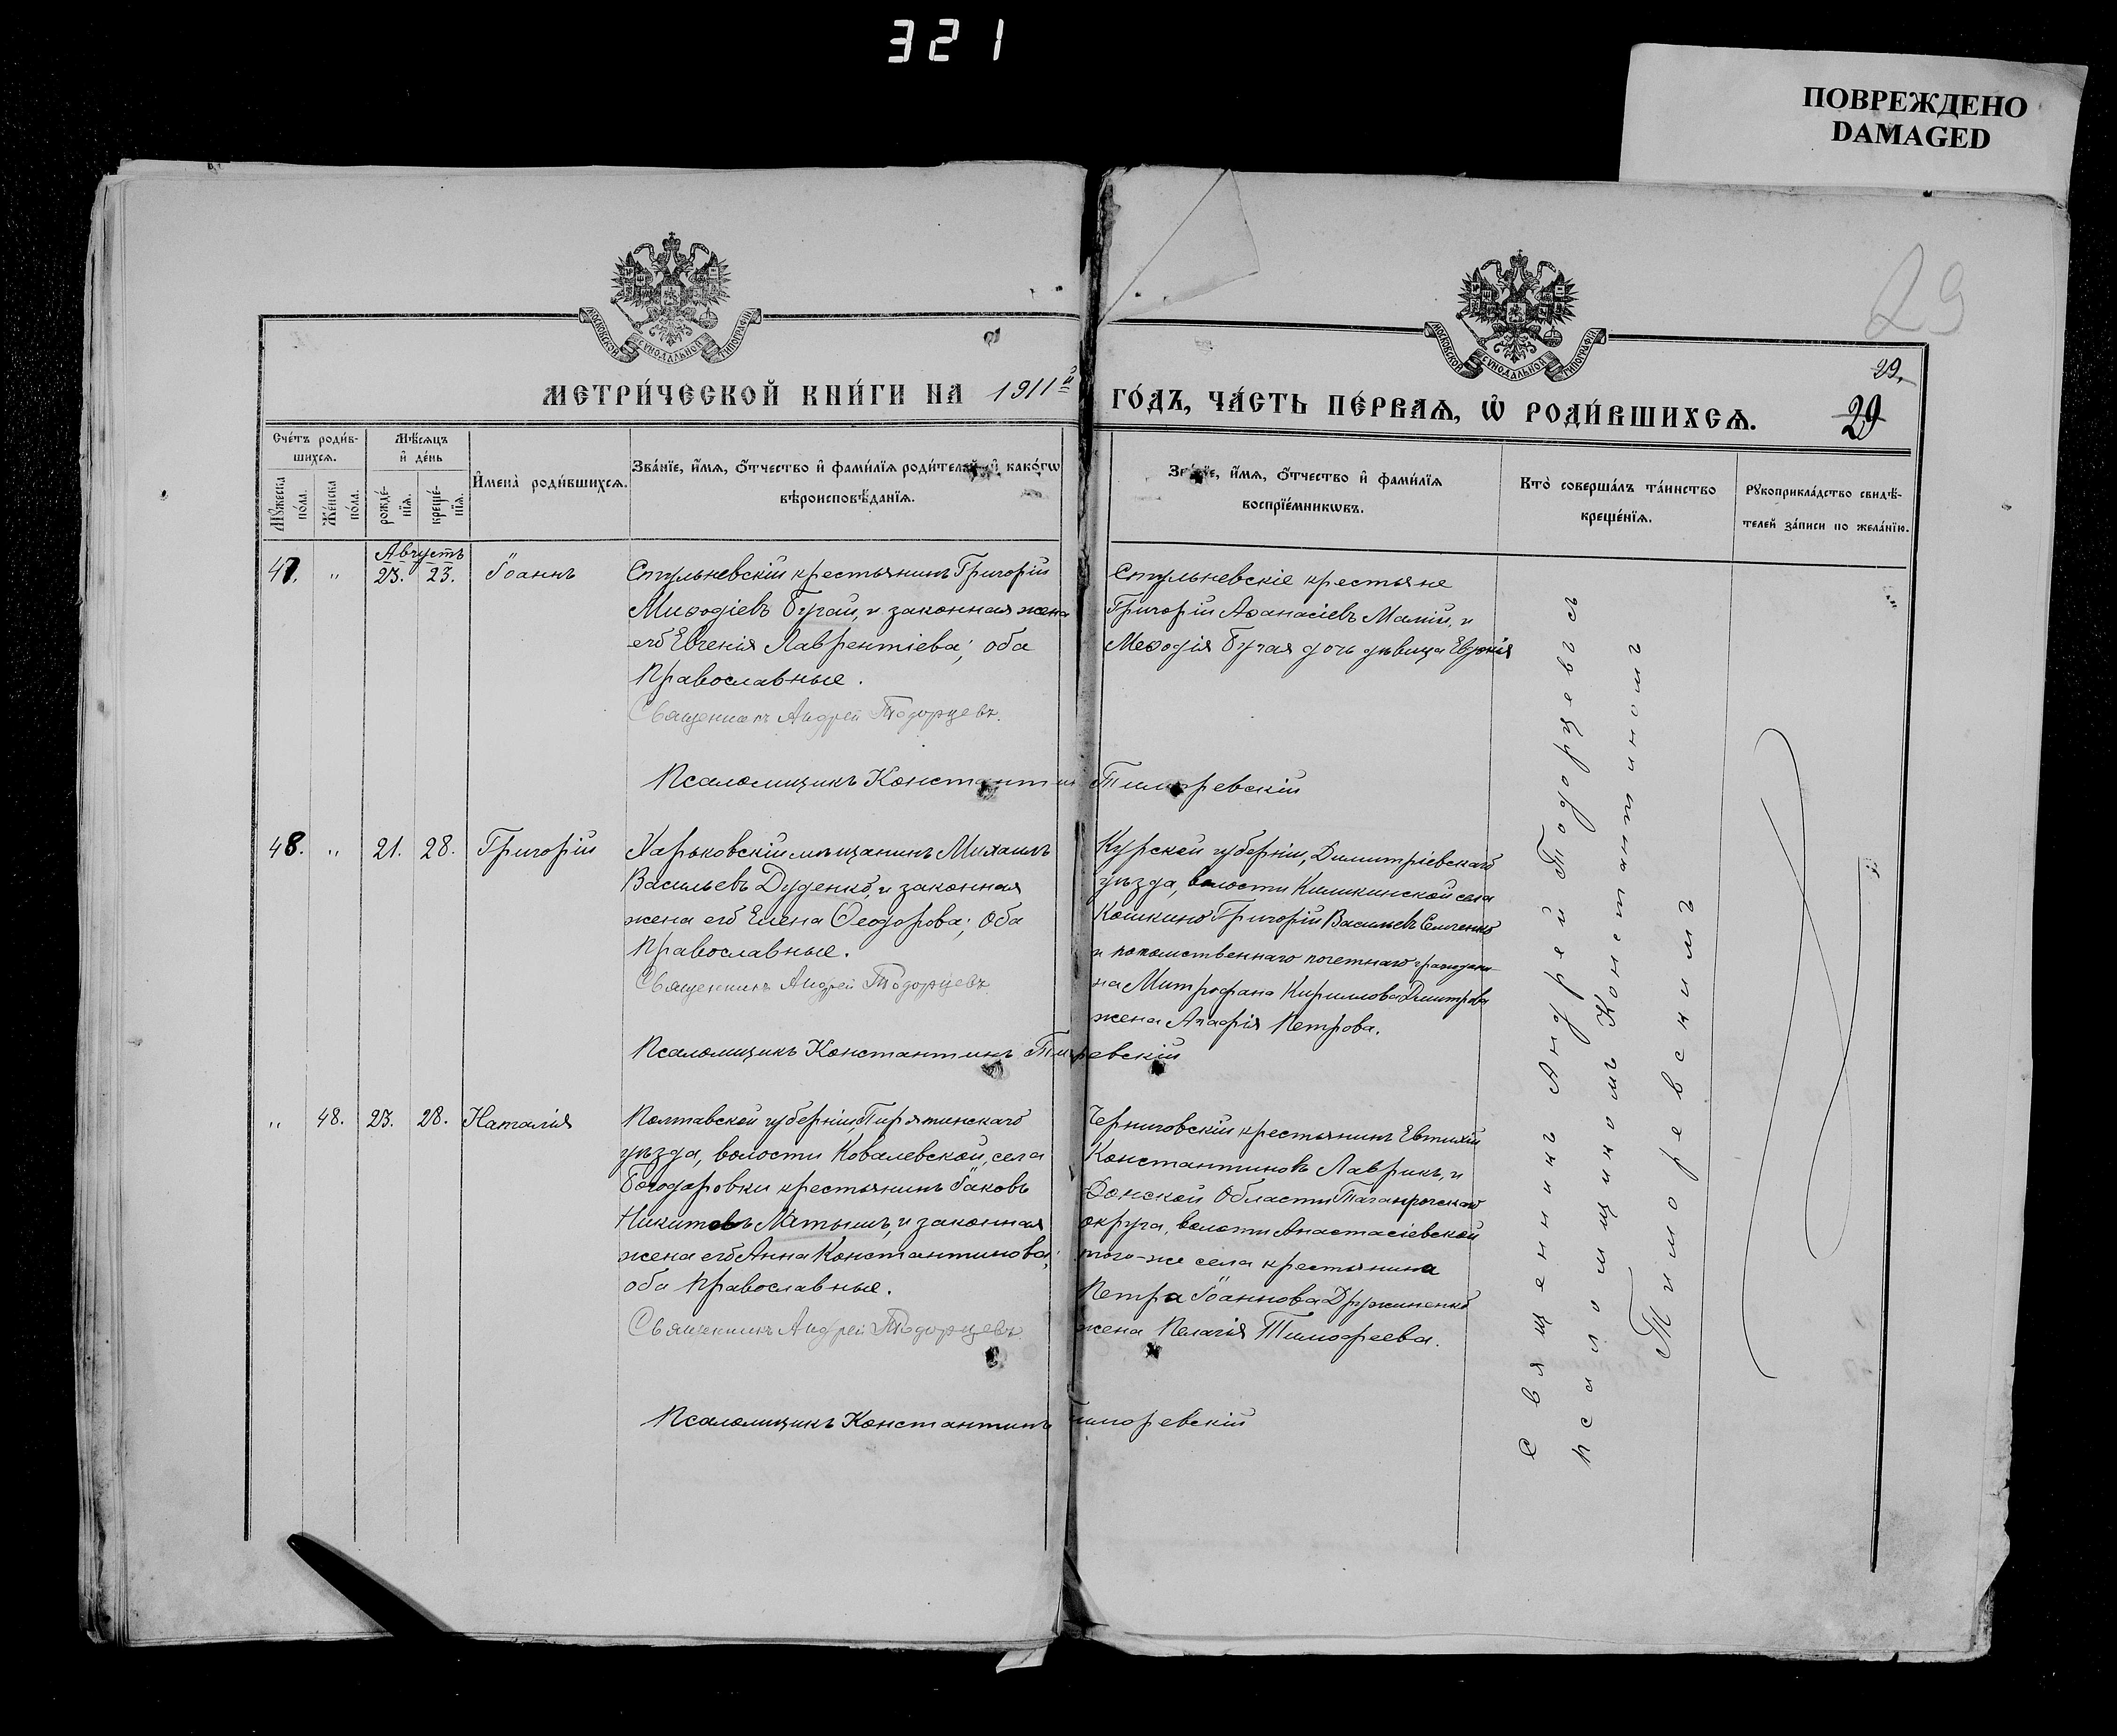 321
ПОВРЕЖДЕНО
DAMAGED
29
МОСКОВСКОЙ СѴНОДАЛЬНОЙ ТИПОГРАФІИ
МОСКОВСКОЙ СѴНОДАЛЬНОЙ ТИПОГРАФІИ
МЕТРИ́ЧЕСКОЙ КНИ́ГИ НА 1911й
ГО́ДЪ, ЧА́СТЬ ПЕ́РВАѦ, Ѡ҆ РОДИ́ВШИХСѦ.
29.
29
Сче́тъ роди́в-
шихсѧ.
Мꙋ́жеска по́ла.
Же́нска по́ла.
Мѣ́сѧцъ
и҆ де́нь
рожде́-
нїѧ.
креще́-
нїѧ.
И҆мена̀ роди́вшихсѧ.
Зва́нїе, и҆́мѧ, ѻ҆́тчество и҆ фами́лїѧ роди́телей, и҆ како́гѡ
вѣроисповѣ́данїѧ.
Зва́нїе, и҆́мѧ, ѻ҆́тчество и҆ фами́лїѧ
воспрїе́мникѡвъ.
Кто̀ соверша́лъ та́инство
креще́нїѧ.
Рꙋкоприкла́дство свидѣ́-
телей за́писи по жела́нїю.
Августъ
47. " 23. 23. Іоаннъ
Стульневскій крестьянинъ Григорій
Миѳодіевъ Бугай, и законная жена
его Евгенія Лаврентіева; оба
Православные.
Священникъ Андрей Тодорцевъ.
Псаломщикъ Константинъ Тиморевскій
Стульневскіе крестьяне
Григорій Аѳанасіевъ Малій, и
Меѳодія Бугая дочь дѣвица
48. " 21. 28. Григорій
Харьковскій мѣщанинъ Михаилъ
Васильевъ Дуденко, и законная
жена его Елена Ѳеодорова; оба
Православные.
Священникъ Андрей Тодорцевъ
Псаломщикъ Константинъ Тиморевскій
Курской губерніи, Димитріевскаго
уѣзда, волости Киликинской села
Кошкино Григорій Васильевъ
и потомственнаго почетнаго гражда-
на Митрофана Кириллова Дмитрова
жена Агафія Петрова.
" 48. 23. 28. Наталія
Полтавской губерніи, Пирятинскаго
уѣзда, волости Ковалевской, села
Богодаровки крестьянинъ Іаковъ
Никитовъ Мятышъ, и законная
жена его Анна Константинова;
оба Православные.
Священникъ Андрей Тодорцевъ
Псаломщикъ Константинъ Тиморевскій
Черниговскій крестьянинъ Евтихій
Константиновъ Лаврикъ, и
Донской Области Таганрогскаго
округа, волости Анастасіевской
того-же села крестьянина
Петра Іоаннова Дружиненко
жена Пелагія Тимофеева.
Священникъ Андрей Тодорцевъ съ
псаломщикомъ Константиномъ
Тиморевскимъ